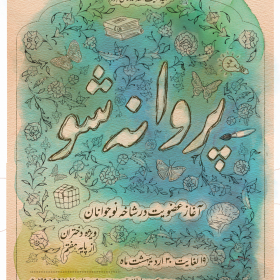 پروانه شو
آغاز عضویت در شاخه نوجوانان
ویژه دختران
از پایه هفتم
۱۹ لغایت ۳۰ اردیبهشت ماه